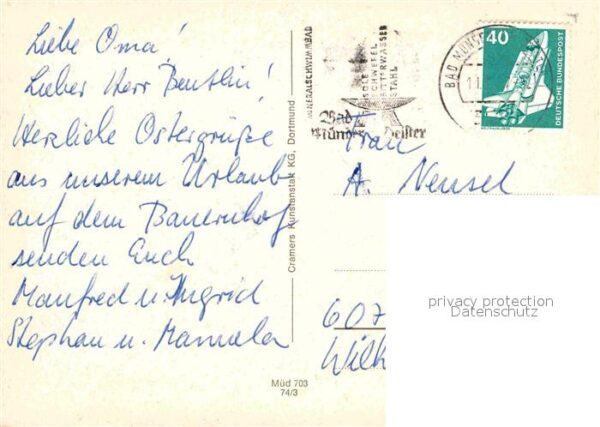 Liebe Oma!
Lieber Herr Beutlin!
Herzliche Ostergrüße
aus unserem Urlaub
auf dem Bauernhof
senden Euch
Manfred u. Ingrid
Stephan u. Manuela
Cramers Kunstanstalt KG, Dortmund
Müd 703
74/3
MINERALSCHWIMMBAD
SOLE
SCHWEFEL
BITTERWASSER
STAHL
Bad
Münder Deister
BAD MÜNDER
40
DEUTSCHE BUNDESPOST
Frau
A. Neusel
607
Wilh
privacy protection
Datenschutz